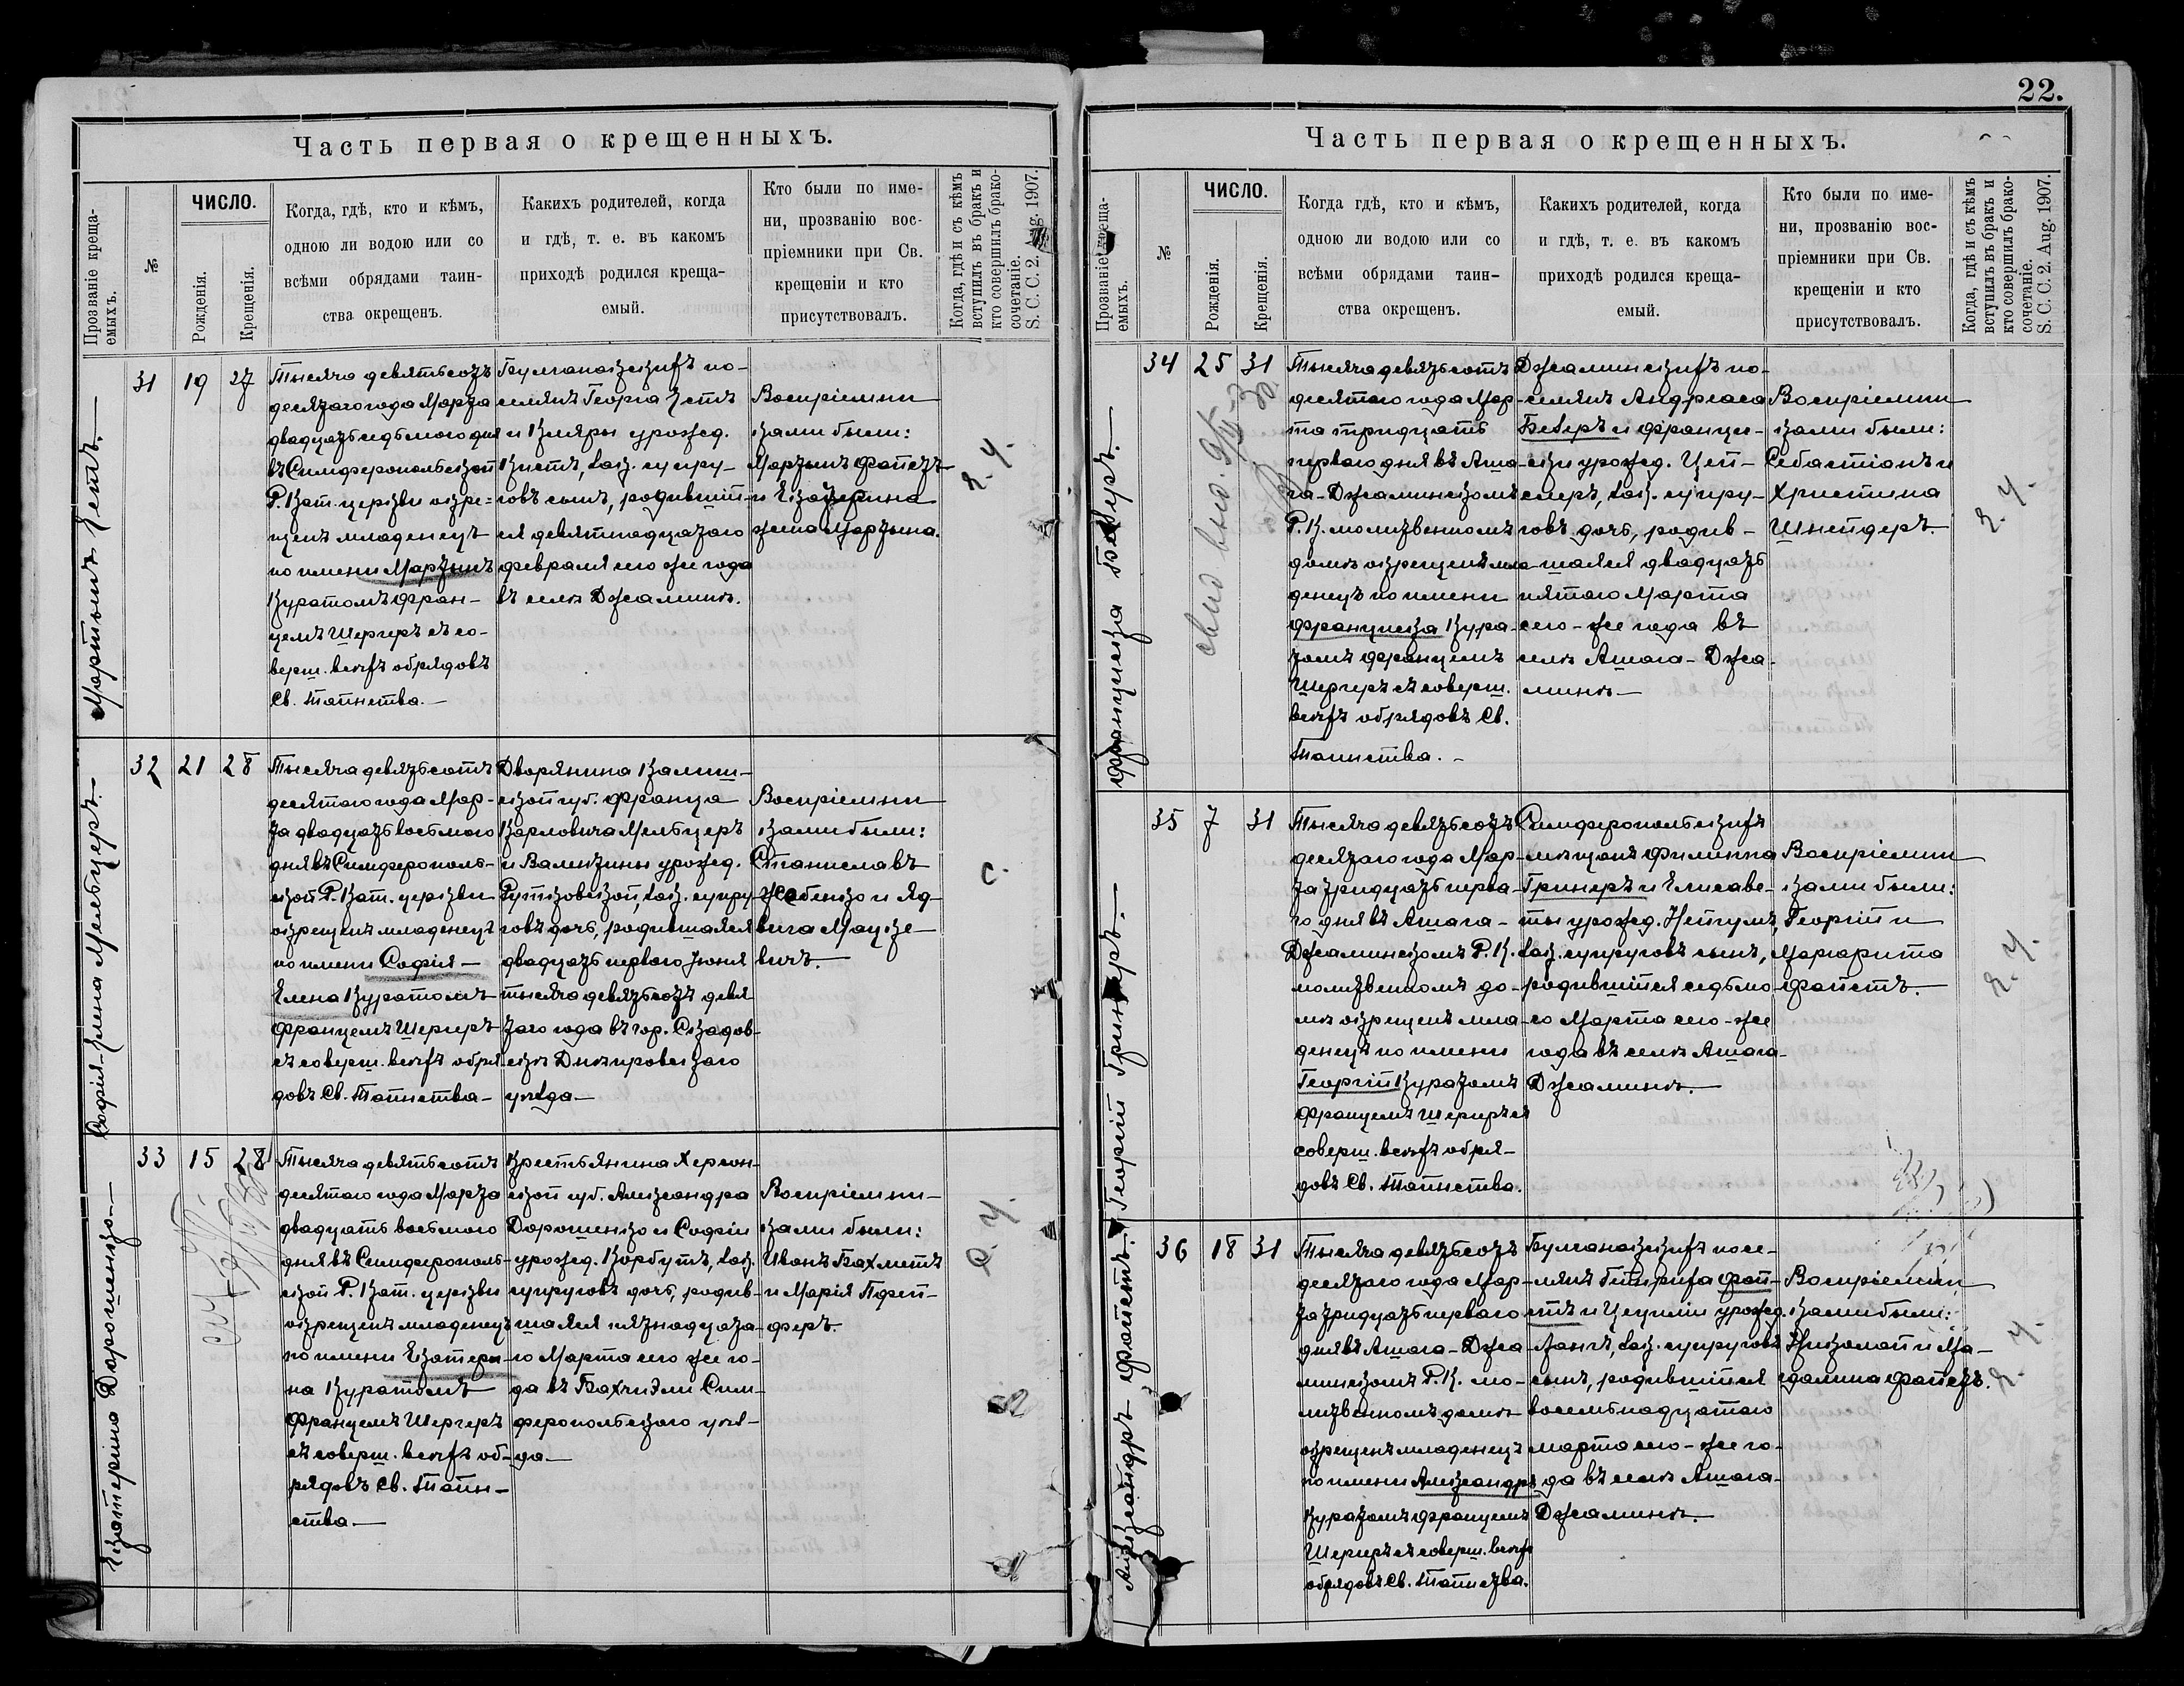 22.
Часть первая о крещенныхъ.
Прозваніе креща-
емыхъ.
№
ЧИСЛО.
Рожденія.
Крещенія.
Когда, гдѣ, кто и кѣмъ,
одною ли водою или со
всѣми обрядами таин-
ства окрещенъ.
Какихъ родителей, когда
и гдѣ, т. е. въ какомъ
приходѣ родился креща-
емый.
Кто были по име-
ни, прозванію вос-
пріемники при Св.
крещеніи и кто
присутствовалъ.
Когда, гдѣ и съ кѣмъ
вступилъ въ бракъ и
кто совершилъ брако-
сочетаніе.
S. C. C. 2. Aug. 1907.
Мартынъ
31
19
27
Тысяча девятьсотъ
десятаго года Марта
двадцать седьмого дня
въ Симферопольской
Р. Кат. церкви окре-
щенъ младенецъ
по имени Мартынъ
Куратомъ Фран-
цемъ Шергеръ съ со-
верш. всѣхъ обрядовъ
Св. Таинства.
по-
селянъ Георга
и Клары урожд.
Кистъ, зак. супру-
говъ сынъ, родившій-
ся девятнадцатаго
февраля сего же года
въ селѣ Джаминъ.
Воспріемни
ками были:
Мартынъ Файстъ
и Екатерина
жена Мартына.
София-Елена Мельцеръ.
32
21
28
Тысяча девятьсотъ
десятаго года Мар-
та двадцать восьмого
дня въ Симферополь-
ской Р. Кат. церкви
окрещенъ младенецъ
по имени Софія-
Елена Куратомъ
Францемъ Шергеръ
съ соверш. всѣхъ обря
довъ Св. Таинства-
Дворянина Калиш-
ской губ. Франца
Карловича Мельцеръ
и Валентины урожд.
Рутковской, зак. супру-
говъ дочь, родившаяся
двадцать перваго Іюня
тысяча девятьсотъ девя
таго года въ гор. Скадов-
скѣ Днѣпровскаго
уѣзда-
Воспріемни
ками были:
Станиславъ
и Яд-
вига Мацке-
вичъ.
С.
Екатерина Дорошенко-
33
15
28
Тысяча девятьсотъ
десятаго года Марта
двадцать восьмого
дня въ Симферополь-
ской Р. Кат. церкви
окрещенъ младенецъ
по имени Екатери-
на Куратомъ
Францемъ Шергеръ
съ соверш. всѣхъ об-
рядовъ Св. Таин-
ства.-
Крестьянина Херсон-
ской губ. Александра
Дорошенко и Софіи
урожд. Корбутъ, зак.
супруговъ дочь, родив-
шаяся пятнадцата-
го Марта сего же го-
да въ Бахчи-Эли Сим-
феропольскаго уѣз-
да-
Воспріемни-
ками были:
Иванъ Бахметъ
и Марія Пфей-
феръ.
Часть первая о крещенныхъ.
Прозваніе креща-
емыхъ.
№
ЧИСЛО.
Рожденія.
Крещенія.
Когда гдѣ, кто и кѣмъ,
одною ли водою или со
всѣми обрядами таин-
ства окрещенъ.
Какихъ родителей, когда
и гдѣ, т. е. въ какомъ
приходѣ родился креща-
емый.
Кто были по име-
ни, прозванію вос-
пріемники при Св.
крещеніи и кто
присутствовалъ.
Когда, гдѣ и съ кѣмъ
вступилъ въ бракъ и
кто совершилъ брако-
сочетаніе.
S. C. C. 2. Aug. 1907.
Франциска Беверъ.-
34
25
31
Тысяча девятьсотъ
десятаго года Мар-
та тридцать
перваго дня въ Аша-
га-Джаминскомъ
Р. К. молитвенномъ
домѣ окрещенъ мла-
денецъ по имени
Франциска Кура-
томъ Францемъ
Шергеръ съ соверш.
всѣхъ обрядовъ Св.
Таинства.-
Джаминскихъ по-
селянъ Андреаса
Беверъ и Францис-
ки урожд. Цей-
слеръ, зак. супру-
говъ дочь, родив-
шаяся двадцать
пятаго Марта
сего-же года въ
селѣ Ашага-Джа-
минъ-
Воспріемни
ками были:
Себастіанъ и
Христина
Шнейдеръ.
Георгій Гринеръ.-
35
7
31
Тысяча девятьсотъ
десятаго года Мар-
та тридцать перва-
го дня въ Ашага-
Джаминскомъ Р. К.
молитвенномъ до-
мѣ окрещенъ мла-
денецъ по имени
Георгій Куратомъ
Францемъ Шергеръ съ
соверш. всѣхъ обря-
довъ Св. Таинства.
Симферопольскихъ
мѣщанъ Филиппа
Гринеръ и Елисаве-
ты урожд. Нейгумъ,
зак. супруговъ сынъ,
родившійся седьмо-
го Марта сего-же
года въ селѣ Ашага-
Джаминъ.-
Воспріемни
ками были:
Георгій и
Маргарита
Файстъ.
Александръ Файстъ.
36
18
31
Тысяча девятьсотъ
десятаго года Мар-
та тридцать перваго
дня въ Ашага-Джа-
минскомъ Р. К. мо-
литвенномъ домѣ
окрещенъ младенецъ
по имени Александръ
Куратомъ Францемъ
Шергеръ съ соверш. всѣхъ
обрядовъ Св. Таинства.
посе-
лянъ Гейнриха Фай-
стъ и Цециліи урожд.
Лангъ, зак. супруговъ
сынъ, родившійся
восемнадцатаго
марта сего-же го-
да въ селѣ Ашага-
Джаминъ.-
Воспріемни
ками были:
Николай и Ма-
гдалина Файстъ.